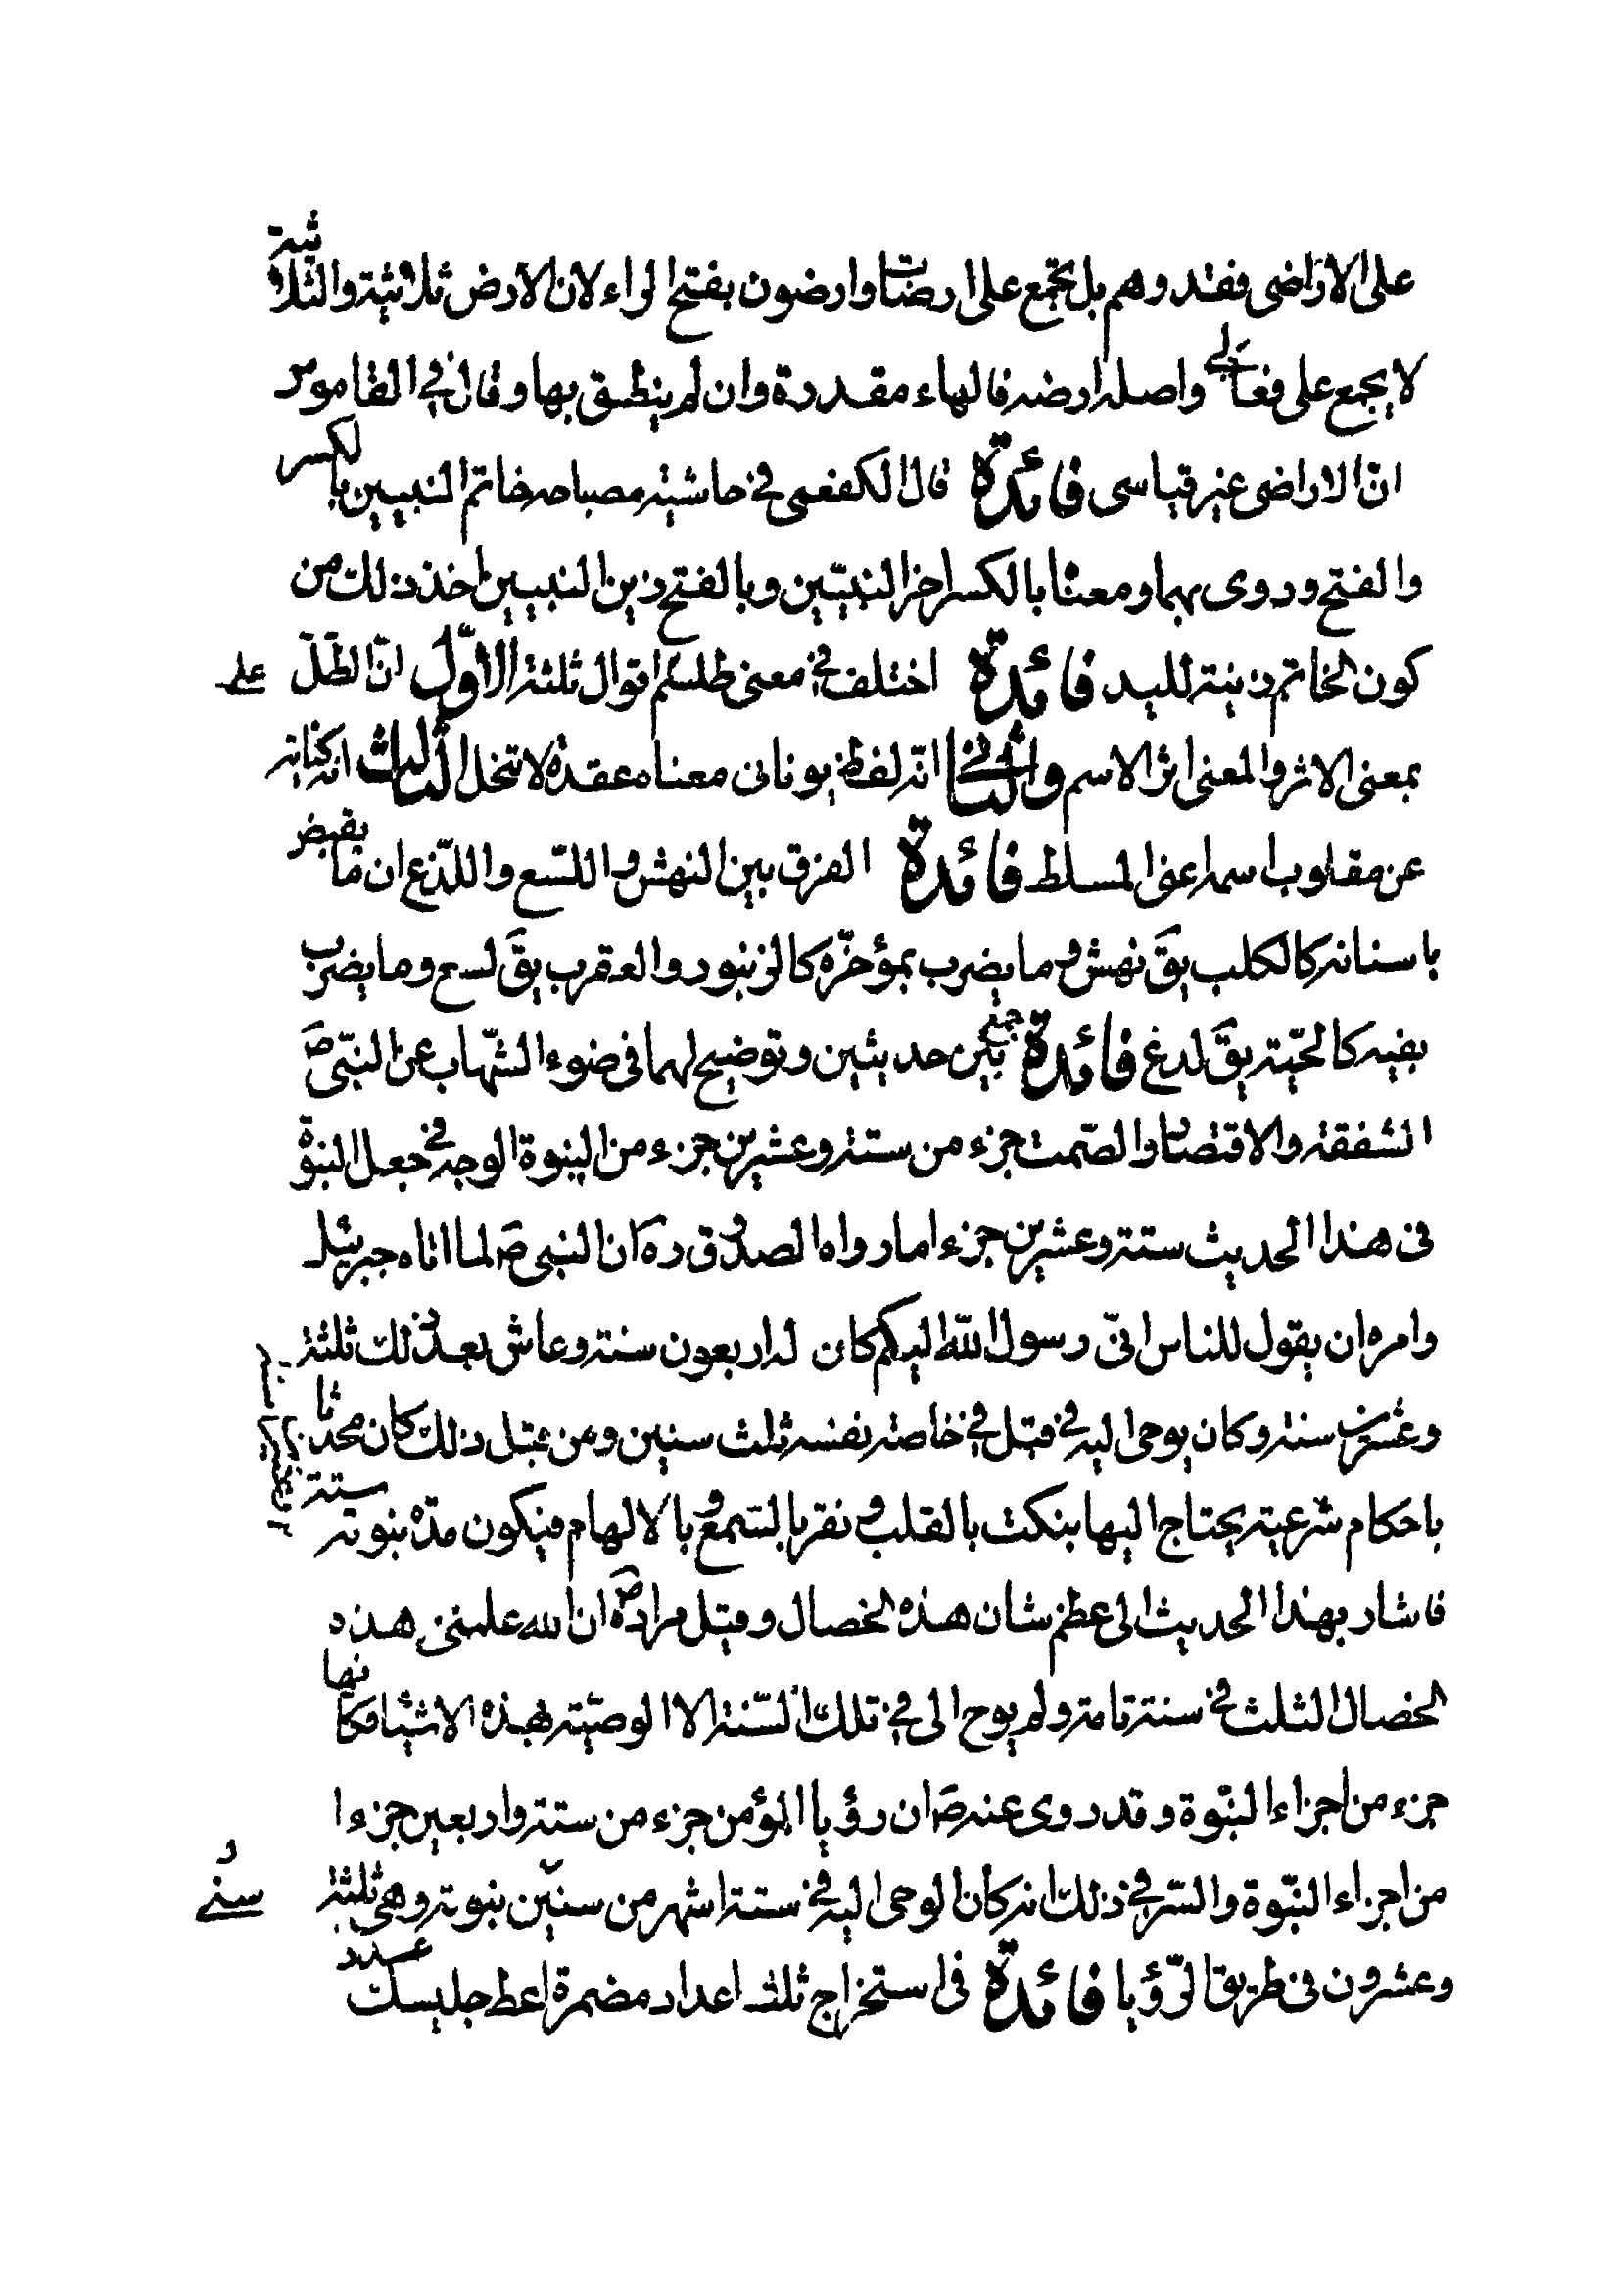 على الاراضى فقد وهم بل تجمع على ارضات وارضون بفتح الراء لان الارض ثلاثية والثلاثية
لا يجمع على فعالى واصله ارضه فالهاء مقدرة وان لم ينطق بها وقال في القاموس
انّ الاراضى غير قياسى فائدة قال الكفعمى في حاشية مصباحه خاتم النبيين بالكسر
والفتح وروى بهما ومعناه بالكسر اخر النبيّين وبالفتح زين النبيين اخذ ذلك من
كون الخاتم زينة لليد فائدة اختلف في معنى طلسم اقوال ثلثة الاوّل انّ الطلّ
بمعنى الاثر والمعنى اثر الاسم والثانى انه لفظ يونانى معناه عقدة لا تنحل الثالث انه كناية
عن مقلوب اسمه اعنى المسلط فائدة الفرق بين النهش واللسّع واللدّغ ان ما يقبض
باسنانه كالكلب يقَ نهش وما يضرب بمؤخرّه كالزنبور والعقرب يقَ لسع وما يضرب
بفيه كالحيّة يقَ لدغ فائدة جمع بين حديثين وتوضيح لهما في ضوء الشّهاب عن النبّى صَ
الشفقة والاقتصاد والصّمت جزء من ستة وعشرين جزء من النبوة الوجه في جعل النبوة
في هذا الحديث ستة وعشرين جزء اما رواه الصدوق ره ان النبى صَ لما اتاه جبرئيل
وامره ان يقول للناس انىّ رسول اللّه اليكم كان له اربعون سنة وعاش بعد ذلك ثلثة
وعشرين سنة وكان يوحى اليه في قبل في خاصة نفسه ثلث سنين ومن قبل ذلك كان محدثا
باحكام شرعية يحتاج اليها بنكت بالقلب ونقر بالسّمع وبالالهام فيكون مدّة نبوته ستة
فاشار بهذا الحديث الى عظم شان هذه الخصال وقيل مراده صَ ان الله علمنى هذه
الخصال الثلث في سنة تامة ولم يوح الى في تلك السّنة الا الوصيّة بهذه الاشياء فكانها
جزء من اجزاء النبّوة وقد روى عنه صَ ان رؤيا المؤمن جزء من ستة واربعين جزءا
من اجزاء النبّوة والسّر في ذلك انه كان الوحى اليه في ستة اشهر من سنين نبوته وهى ثلثة
وعشرون في طريق الرّؤيا فائدة في استخراج ثلث اعداد مضمرة اعط جليسك عدد